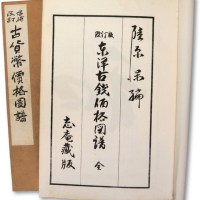 陸原保編
改訂版
東洋古銭価格図譜 全
庵藏版
改訂
古貨幣價格図譜